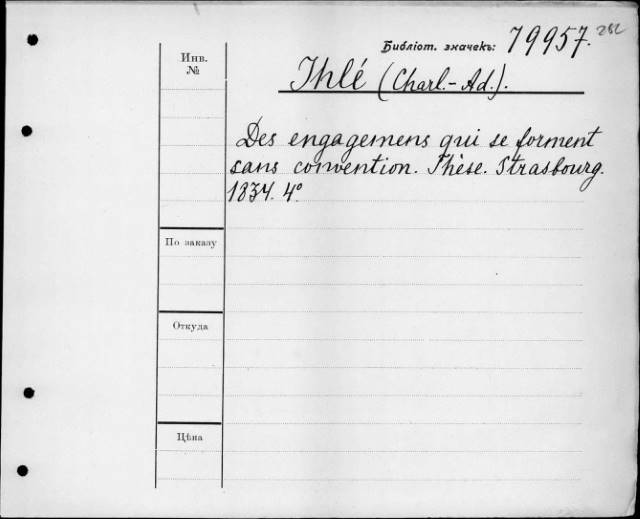 Библіот. значекъ: 79957.
Инв.
№
Ihlé (Charl.-Ad.).
Des engagemens qui se forment
sans convention. Thèse. Strasbourg.
1834. 4°
По заказу
Откуда
Цѣна